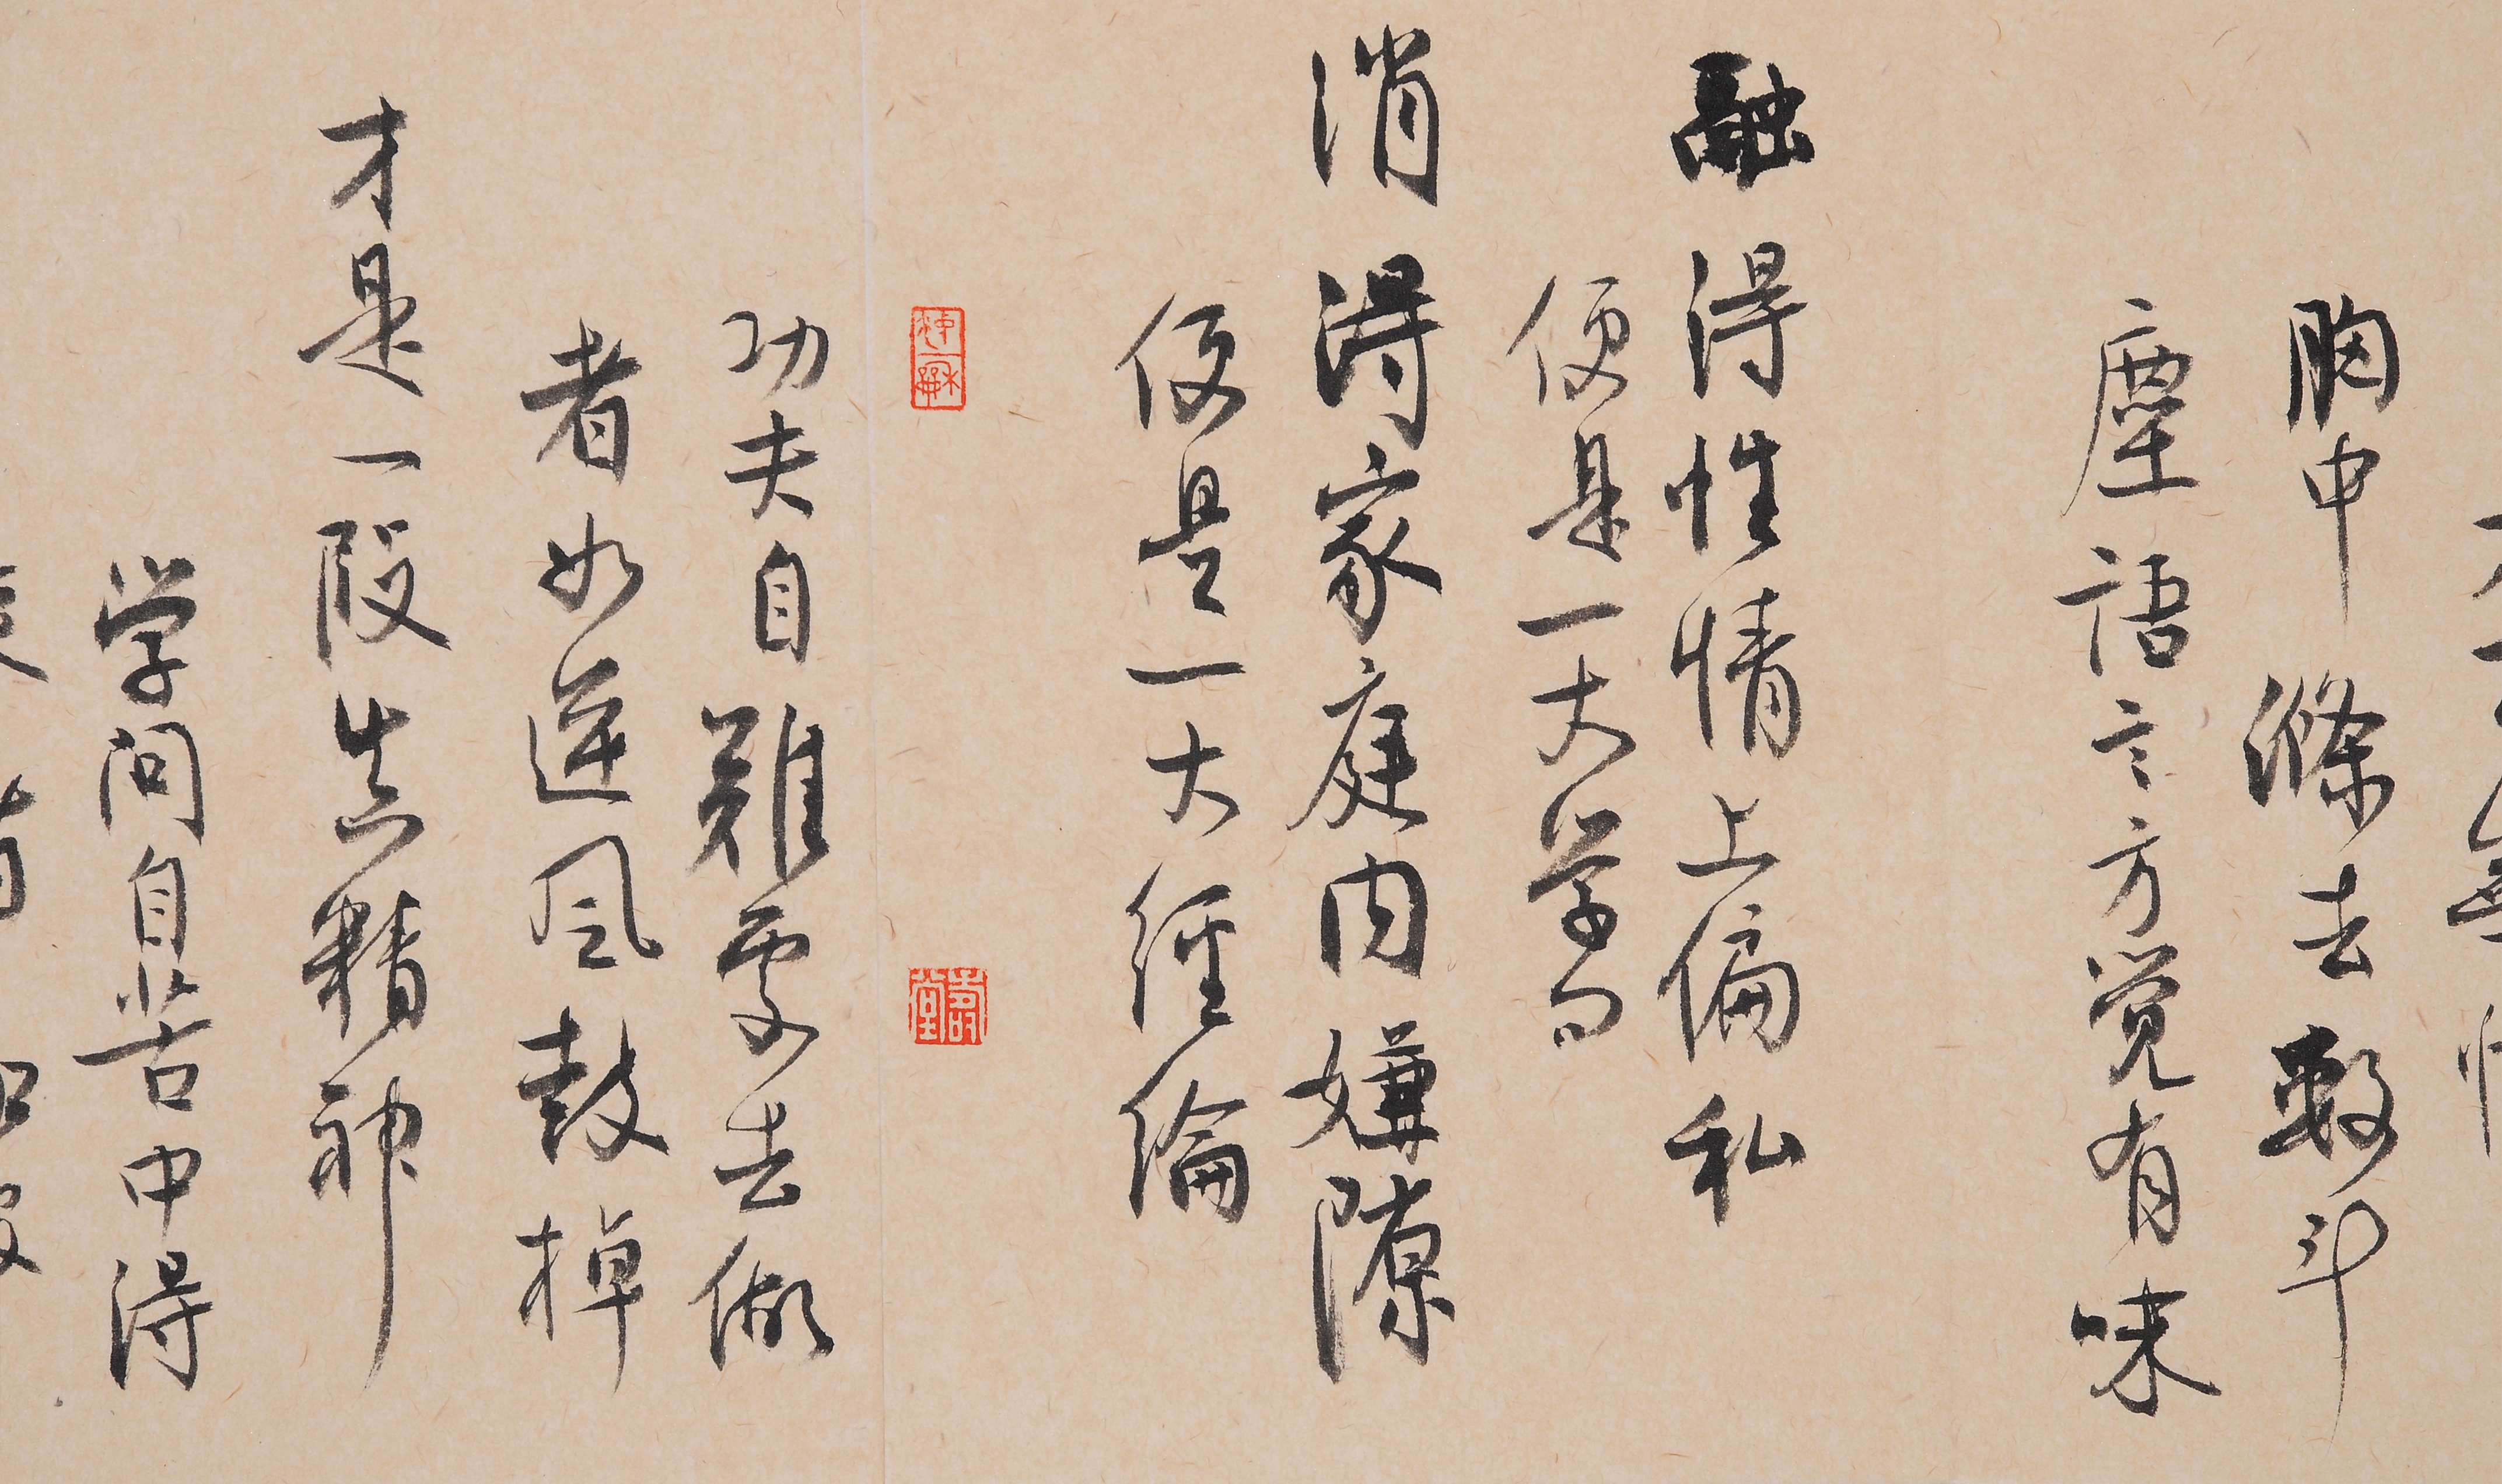 胸中滌去數斗
塵語言方覚有味
融得性情上偏私
便是一大学問
消得家庭内嫌隙
便是一大経綸
功夫自難處去做
者如逆風鼓棹
才是一段真精神
学問自苦中得